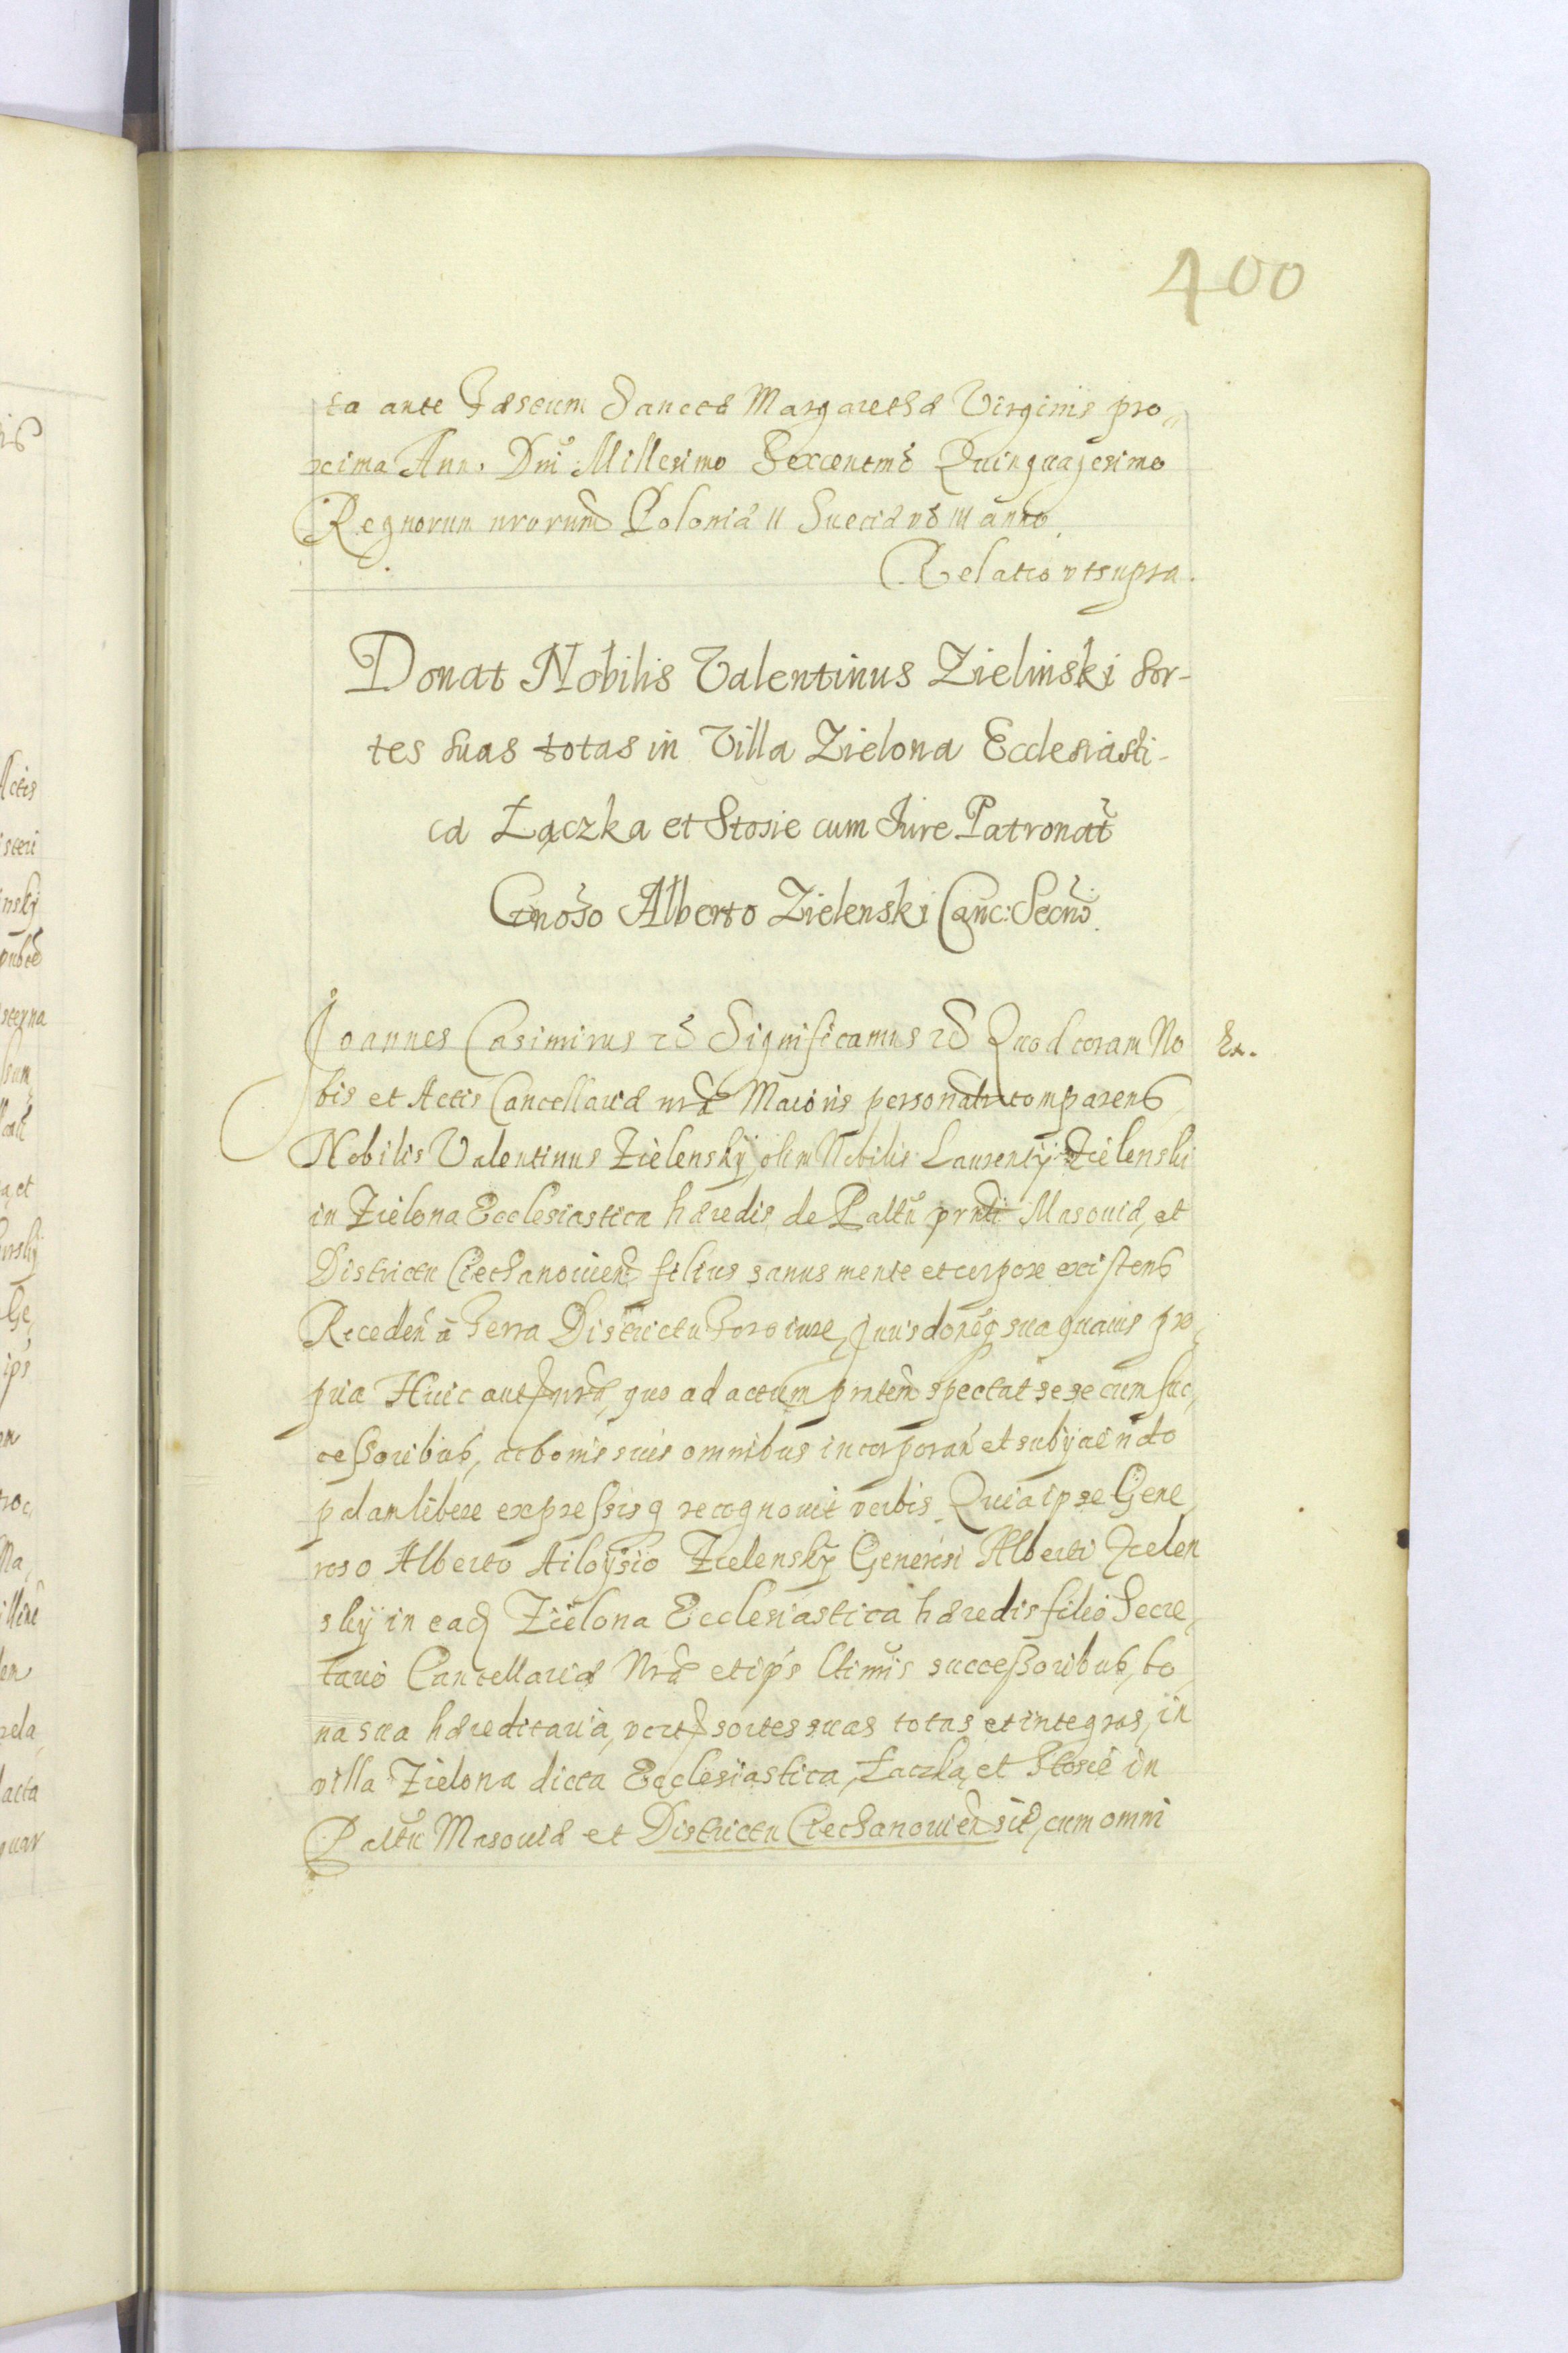 400
ta ante Fæstum Sanctæ Margarethæ Virginis pro,
xima Ann. Dnī Millesimo Sexcentmō Quinquagesimo
Regnorum nrorum Poloniæ II Sueciæ vō III anno.
Relatio ut supra.
Donat Nobilis Valentinus Zielinski Sor-
tes suas totas in Villa Zielona Ecclesiasti-
ca Łączka et Stosie cum Iure Patronat̃
Gnoso Alberto Zielenski Canc: Secrio.
Joannes Casimirus etc Significamus etc Quod coram No
Ex.
bis et Actis Cancellariæ nræ Maioris personalr comparens
Nobilis Valentinus Zielenskÿ, olim Nobilis Laurentÿ Zielenski
in Zielona Ecclesiastica hæredis de Paltu Masouiæ, et
Districtu Ciechanouien filius sanus mente et corpore existens
Receden à Terra Districtu foro iure, sua quauis pro,
pria Huic aut nræ, quo ad actum pntem spectat sese cum suc,
cessoribus, ac bonis suis omnibus incorporan et subÿciendo
palam libere expressisq recognouit verbis. Quia ipse Gene
roso Alberto Ailoysio Zielenskÿ Generosi Alberti Zielen
skÿ in eadem Zielona Ecclesiastica hæredis filio Secre,
tario Cancellariæ Nræ et ips ltimis successoribus, bo
na sua hæreditaria, vert sortes suas totas et integras, in
villa Zielona dicta Ecclesiastica, Łaczka, et Stosie in
Paltu Masouiæ et Districtu Ciechanouien sit, cum omni